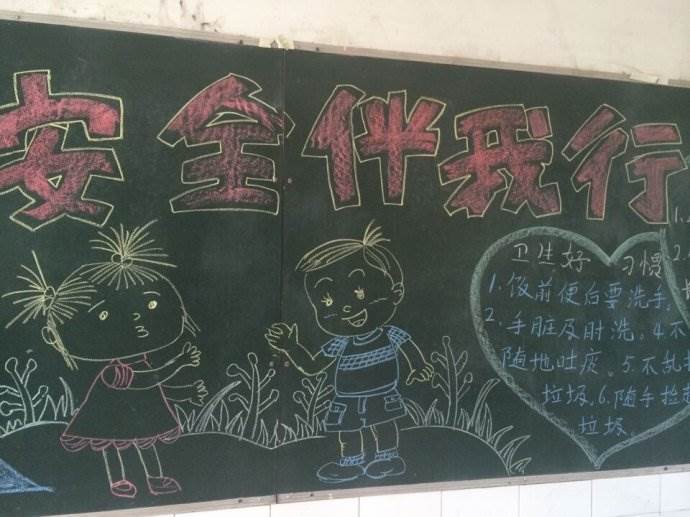 安全伴我行
卫生好习惯
1.饭前便后要洗手。
2.手脏及时洗。4.不
随地吐痰。5.不乱
垃圾.6.随手捡起
垃圾.
1.
2.